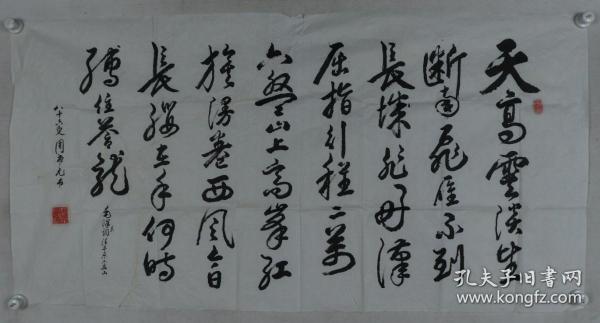 天高雲淡望
断南飛雁不到
長城非好漢
屈指行程二萬
六盤山上高峯紅
旗漫卷西風今日
長纓在手何時
縛住蒼龍
毛澤東詞清平樂六盤山
八十六叟周
孔夫子旧书网
www.kongfz.com